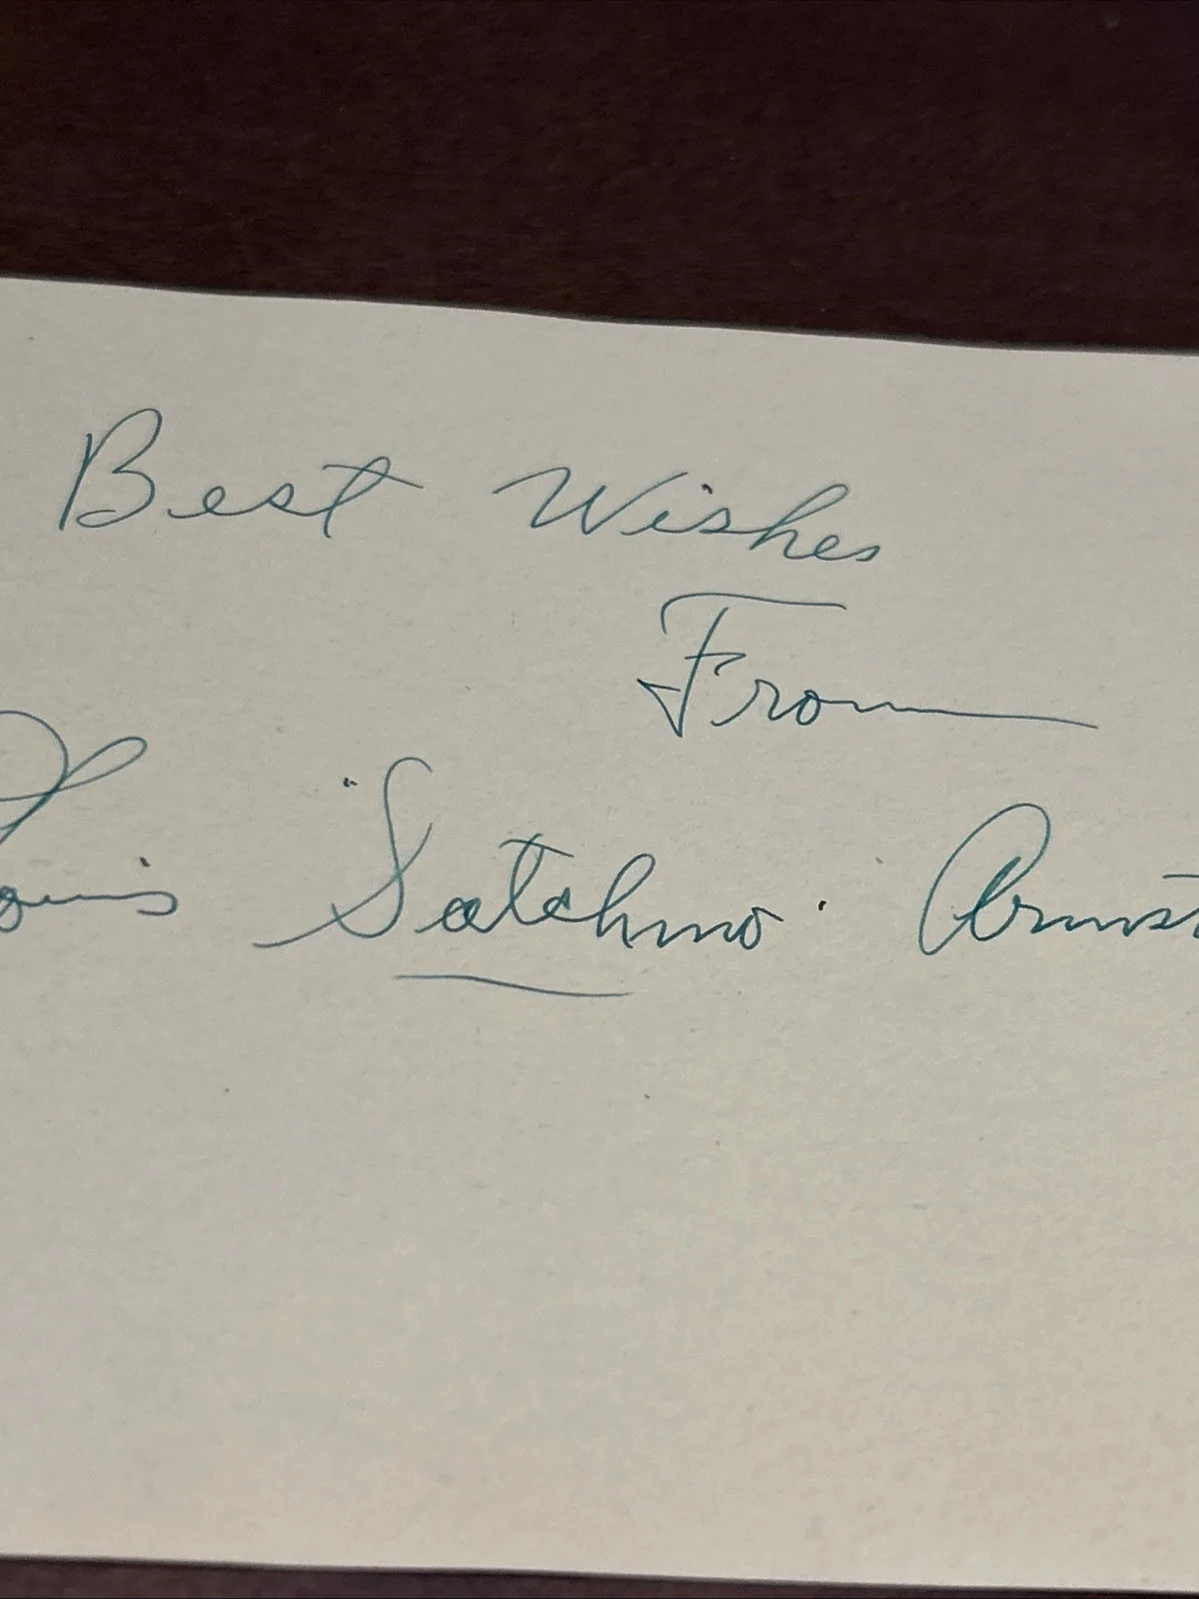 Best Wishes
From
Louis "Satchmo" Armst